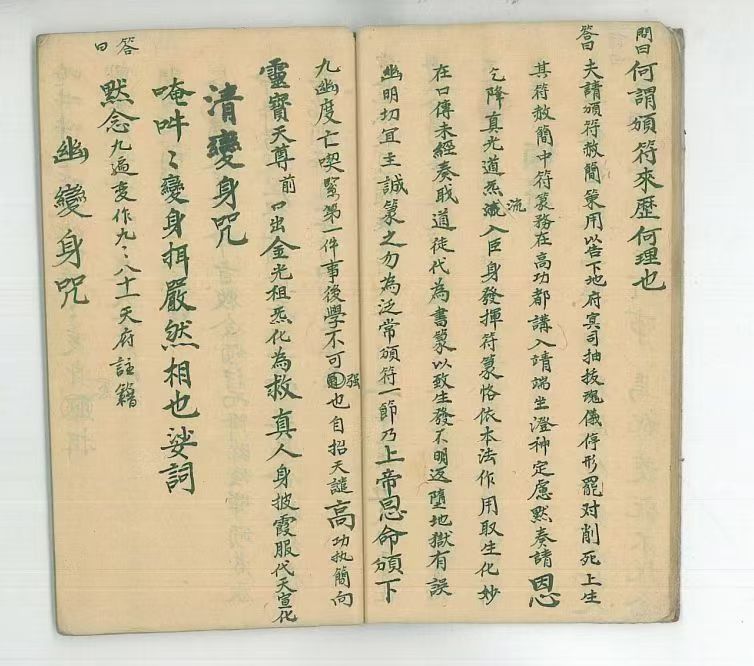 問曰何謂頒符來歷何理也
答曰夫請頒符赦簡篆用以告下地府冥司抽拔魂儀停形罷对削死上生
其符赦簡中符篆務在高功都講入靖端坐澄神定慮黙奏請恩
乞降真光道炁流入臣身發揮符篆恪依本法作用取生化妙
在口傳未經奏职道徒代為書篆以致生發不明返墮地獄有誤
幽明切宜主誠篆之勿為泛常頒符一節乃上帝恩命頒下
九幽度亡喫緊第一件事後學不可強也自招天譴高功执簡向
靈寶天尊前口出金光祖炁化為救真人身披霞服代天宣化
清變身咒
唵吽〻變身揖嚴然相也娑詞
黙念九遍变作九〻八十一天府註籍
答曰
幽變身咒